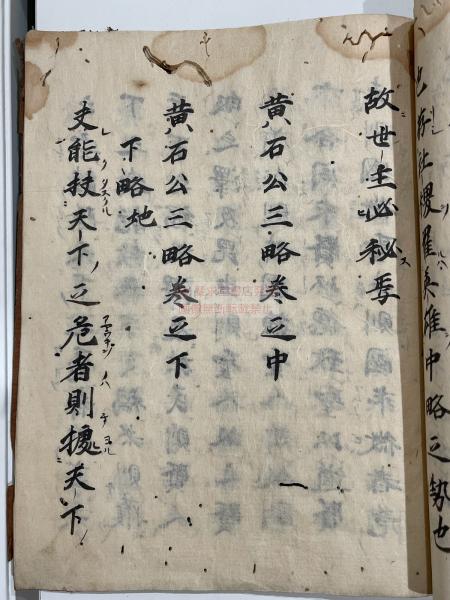 也存社稷羅英雄中略之勢也
故世主必秘焉
黄石公三略巻之中
黄石公三略巻之下
下略地
夫能扶天下之危者則據天下